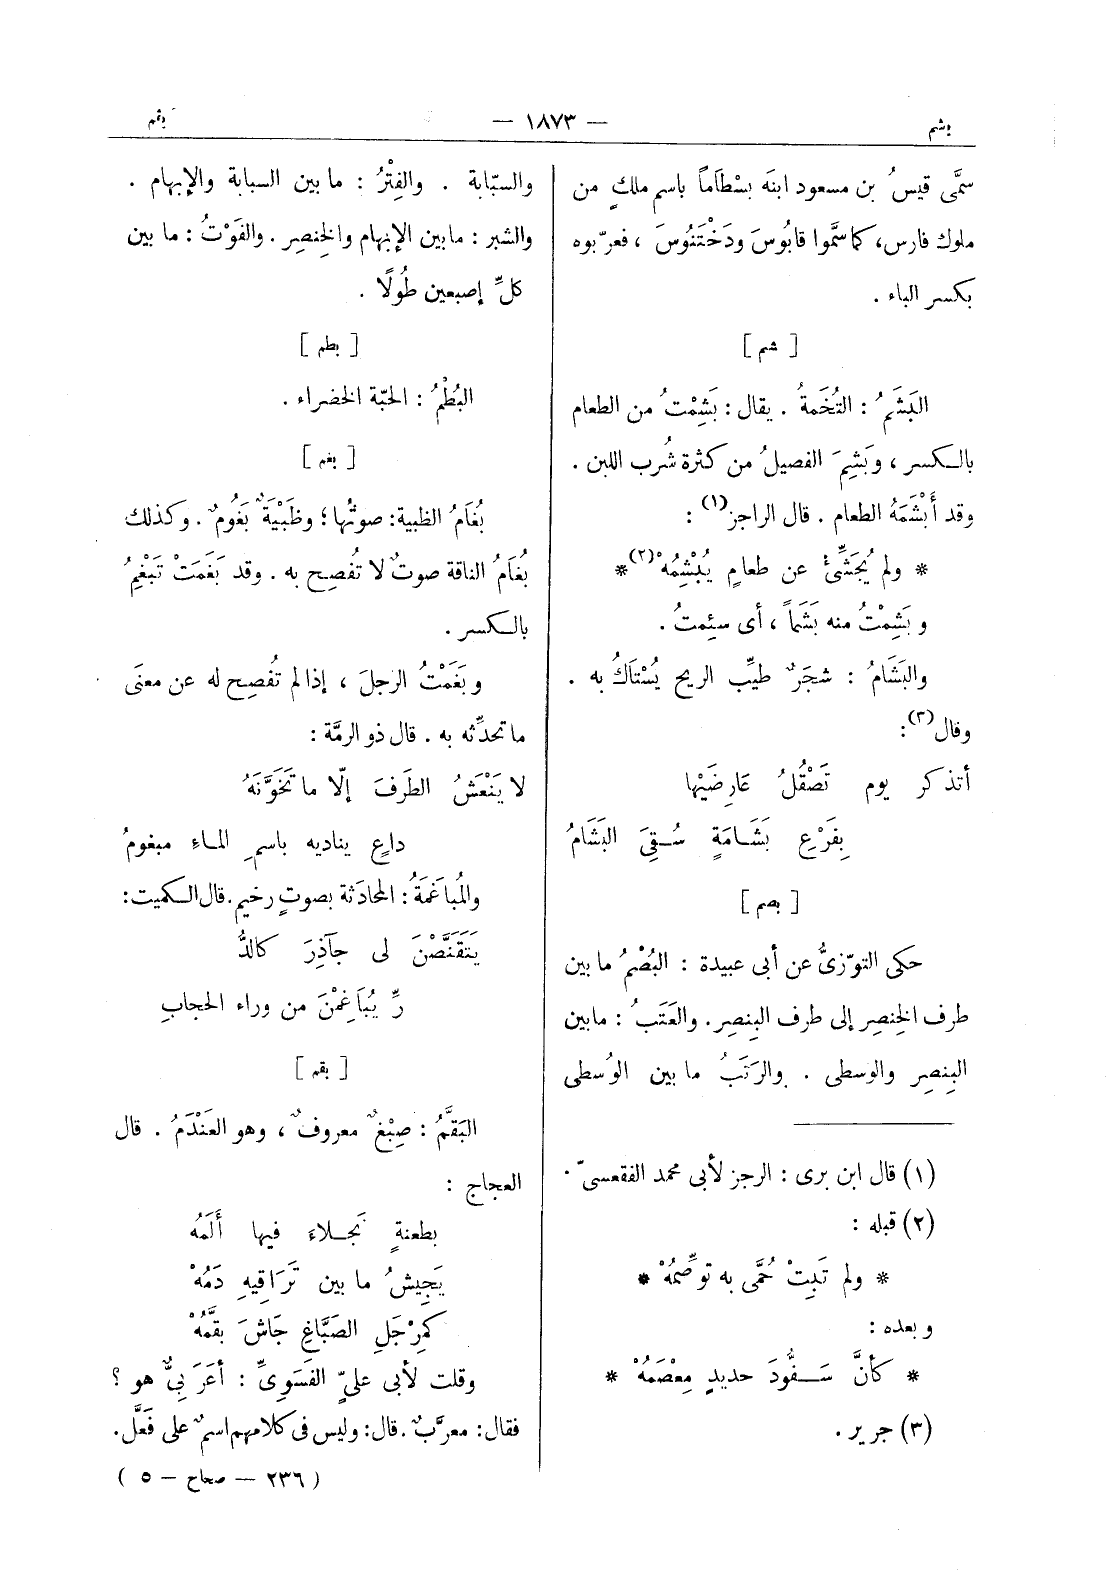 بشم
— ١٨٧٣ —
بقم
سمَّى قيسُ بن مسعود ابنَه بسْطَاماً باسم ملكٍ من
ملوك فارس، كما سمَّوا قابُوسَ ودَخْتَنُوسَ ، فعرّبوه
بكسر الباء .
[ بشم ]
البَشَمُ : التُخَمةُ . يقال : بَشِمْتُ من الطعام
بالكسر ، وبَشِمَ الفصيلُ من كثرة شُرب اللبن .
وقد أَبْشَمَهُ الطعام . قال الراجز (١) :
* ولم يُجَشِّئْ عن طعامٍ يُبْشِمُهْ (٢) *
وبَشِمْتُ منه بَشَماً ، أى سئِمتُ .
والبَشَامُ : شجَرٌ طيِّب الريح يُسْتَاكُ به .
وقال (٣) :
أتذكر يوم تَصْقُلُ عَارِضَيْها
بِفَرْعِ بَشَامَةٍ سُقِىَ البَشَامُ
[ بصم ]
حكى التوّزىُّ عن أبى عبيدة : البُصْمُ ما بين
طرف الخِنصِر إلى طرف البِنصِر. والعَتَبُ : ما بين
البِنصِر والوسطى . والرَتَبُ ما بين الوُسطى
(١) قال ابن برى : الرجز لأبى محمد الفقعسىّ .
(٢) قبله :
* ولم تَبِتْ حُمَّى به توصِّمُهْ *
وبعده :
* كأنَّ سَفُّودَ حديدٍ مِعْصَمُهْ *
(٣) جرير .
والسبّابة . والفِتْرُ : ما بين السبابة والإبهام .
والشبر : ما بين الإبهام والخِنصِر . والفَوْتُ : ما بين
كلِّ إصبعين طُولًا .
[ بطم ]
البُطْمُ : الحبّة الخضراء .
[ بغم ]
بُغَامُ الظبية : صوتُها ؛ وظَبْيَةٌ بَغُومٌ . وكذلك
بُغَامُ الناقة صوتٌ لا تُفصِح به . وقد بَغَمَتْ تَبْغِمُ
بالكسر .
وبَغَمْتُ الرجلَ ، إذا لم تُفصِح له عن معنَى
ما تحدِّثه به . قال ذو الرمَّة :
لا يَنْعَشُ الطَرفَ إلّا ما تَخَوَّنَهُ
داعٍ يناديه باسمِ الماءِ مبغومُ
والمُبَاغَمَةُ : المحادَثة بصوتٍ رخيم. قال الكميت :
يَتَقَنَّصْنَ لى جآذِرَ كالدُّ
رِّ يُبَاغِمْنَ من وراء الحجابِ
[ بقم ]
البَقَّمُ : صِبْغٌ معروفٌ ، وهو العَنْدَمُ . قال
العجاج :
بطعنةٍ نَجلاءَ فيها أَلَمُهْ
يَجِيشُ ما بين تَرَاقِيهِ دَمُهْ
كمِرْجَلِ الصَبَّاغِ جَاشَ بقَّمُهْ
وقلت لأبى علىٍّ الفَسَوِىِّ : أعَرَبِىٌّ هو ؟
فقال : معرَّبٌ . قال : وليس فى كلامهم اسمٌ على فَعَّلَ.
( ٢٣٦ — صحاح — ٥ )